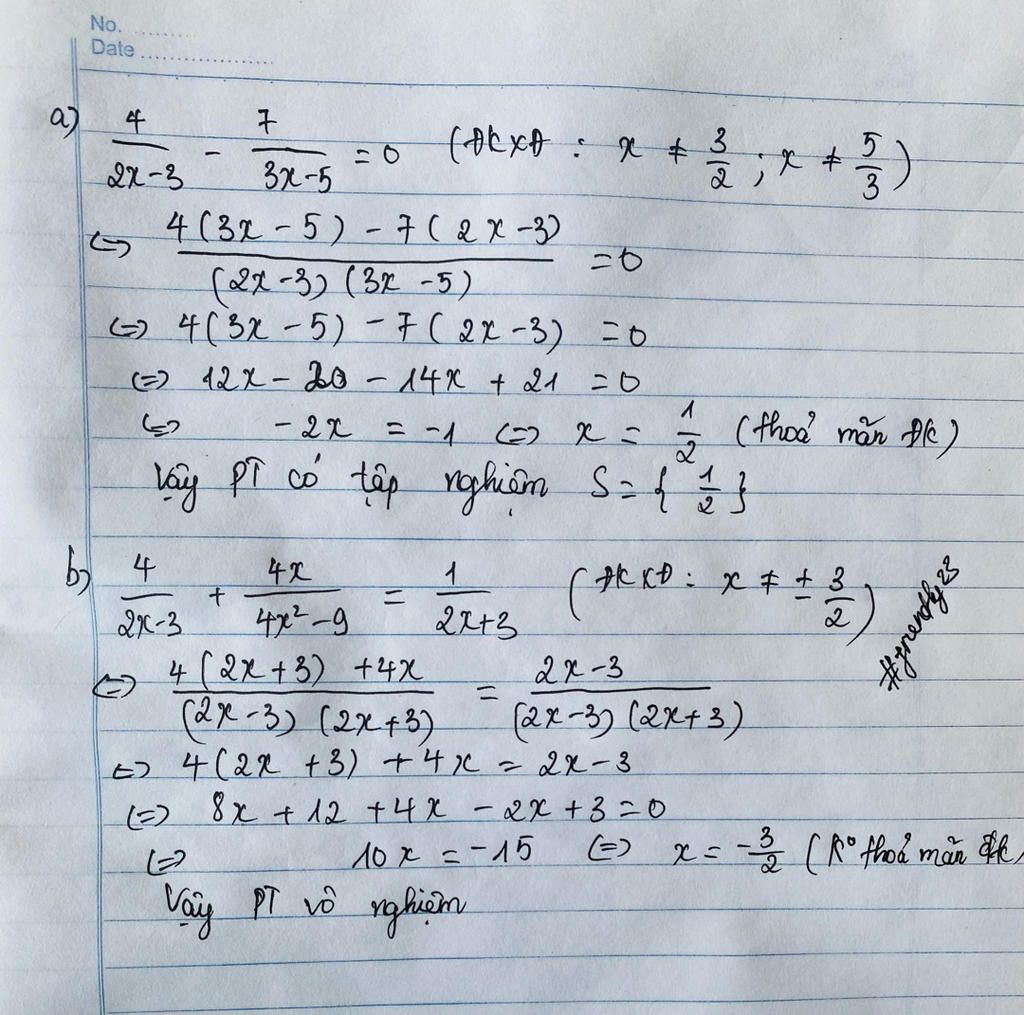 No. ............
Date ......................
a) 4/(2x-3) - 7/(3x-5) = 0 (ĐKXĐ : x ≠ 3/2 ; x ≠ 5/3)
<=> (4(3x - 5) - 7(2x - 3))/((2x - 3)(3x - 5)) = 0
<=> 4(3x - 5) - 7(2x - 3) = 0
<=> 12x - 20 - 14x + 21 = 0
<=> -2x = -1 <=> x = 1/2 (thoả mãn ĐK)
Vậy PT có tập nghiệm S = { 1/2 }
b) 4/(2x-3) + 4x/(4x²-9) = 1/(2x+3) (ĐKXĐ : x ≠ ± 3/2)
#friendly23
<=> (4(2x+3) + 4x)/((2x-3)(2x+3)) = (2x-3)/((2x-3)(2x+3))
<=> 4(2x + 3) + 4x = 2x - 3
<=> 8x + 12 + 4x - 2x + 3 = 0
<=> 10x = -15 <=> x = -3/2 (K° thoả mãn đk)
Vậy PT vô nghiệm